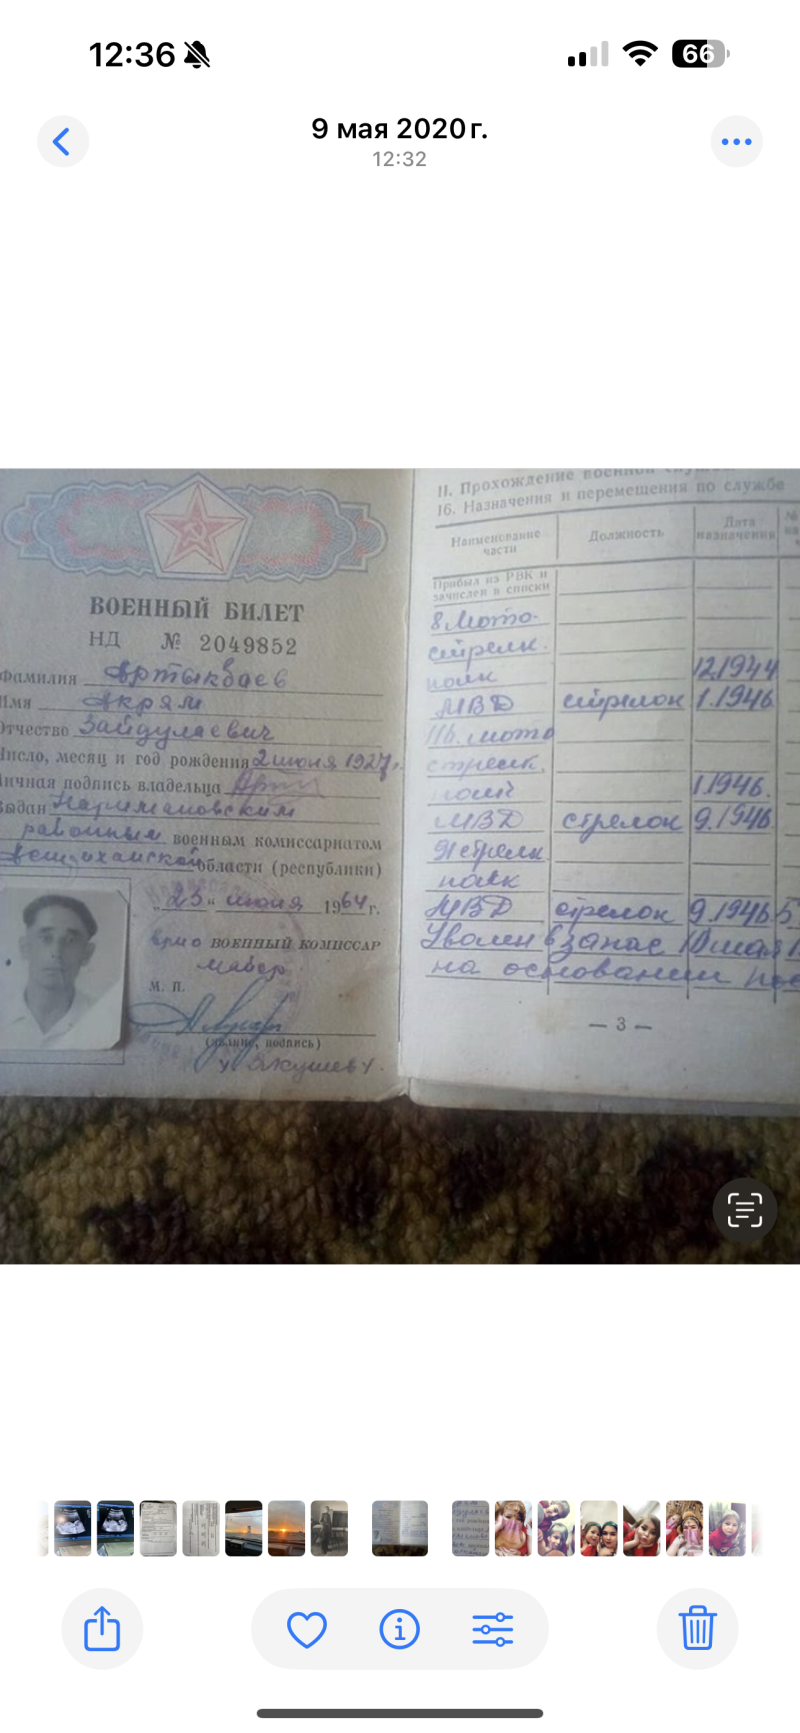 12:36
66
9 мая 2020 г.
12:32
ВОЕННЫЙ БИЛЕТ
НД № 2049852
Фамилия Артыкбаев
Имя Акрям
Отчество Зайдулаевич
Число, месяц и год рождения 2 июня 1927 г.
Личная подпись владельца
Выдан Наримановским
районным военным комиссариатом
Астраханской области (республики)
"23" июня 1964 г.
врио ВОЕННЫЙ КОМИССАР
майор
М. П.
(звание, подпись)
/Якушев/
II. Прохождение военной службы
16. Назначения и перемещения по службе
Наименование части
Должность
Дата назначения
№
Прибыл из РВК и
зачислен в списки
8 Мото-
стрелк.
полк 12.1944
МВД стрелок 1.1946
мото
стрелк.
полк 1.1946.
МВД стрелок 9.1946
стрелк
полк
МВД стрелок 9.1946 5
Уволен в запас 10 мая
на основании
— 3 —